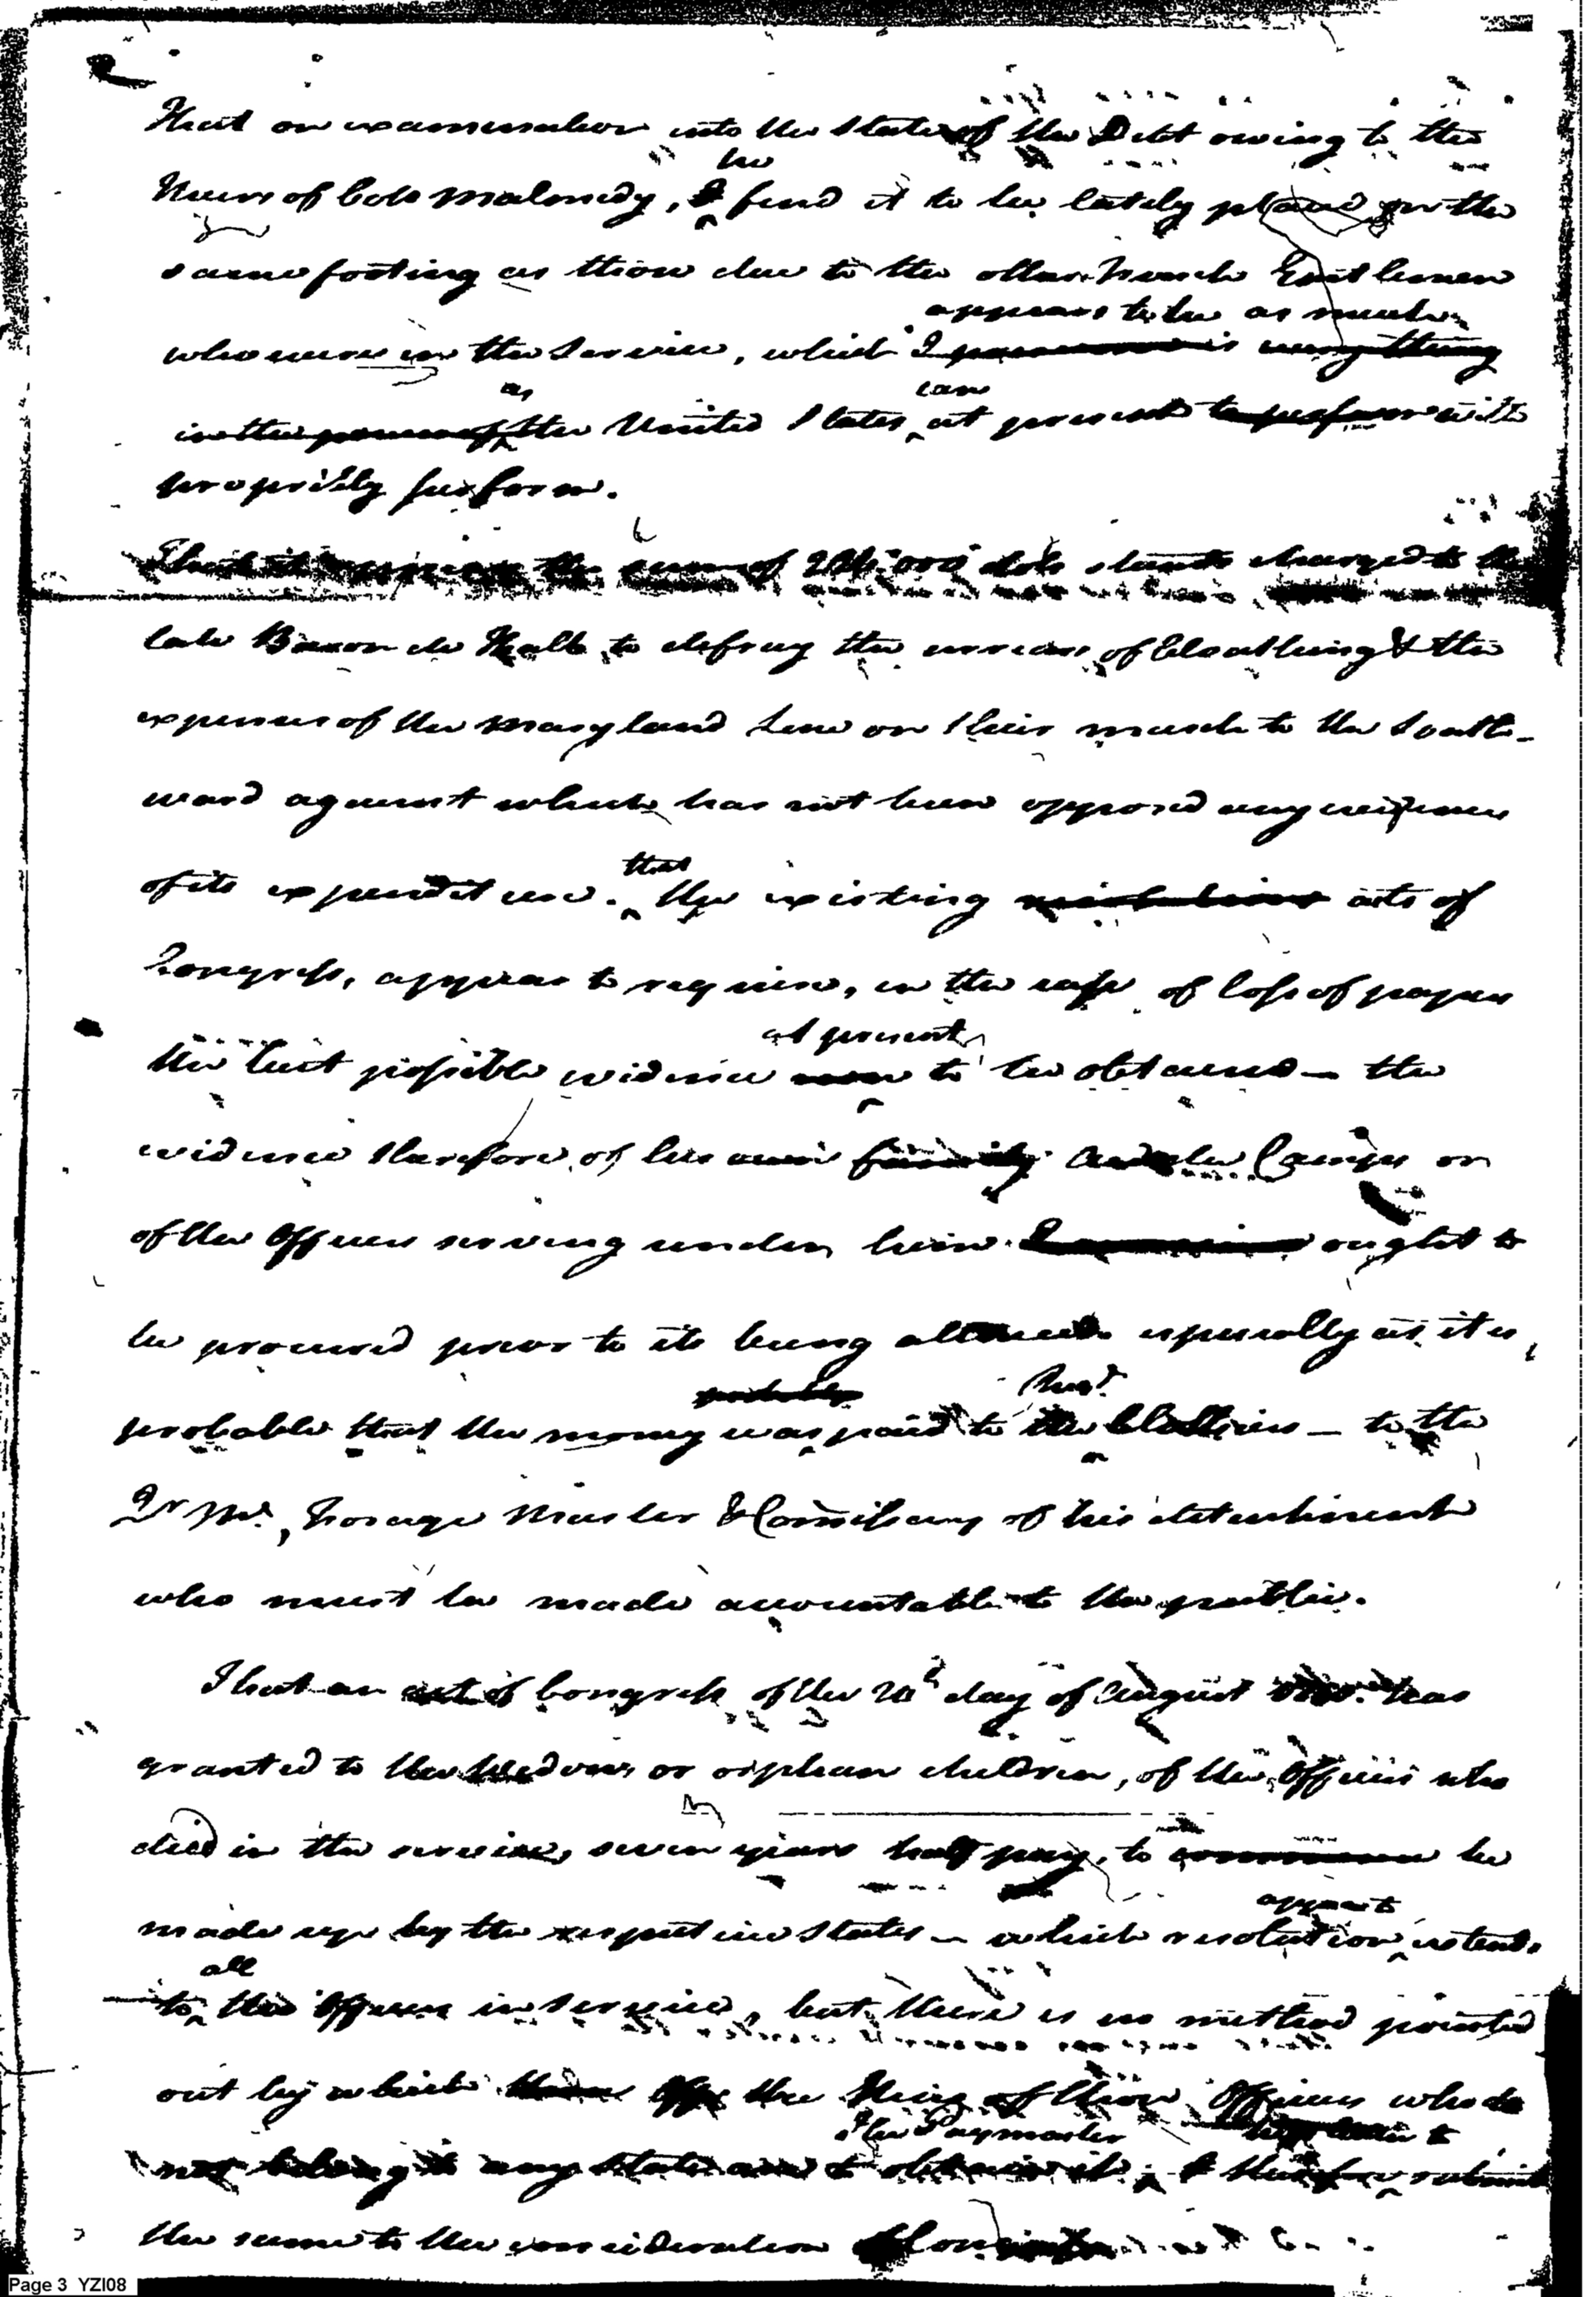 That on examination into the State of the Debt owing to the
he
Heirs of Colo Malmedy, I find it to be lately placed on the
same footing as those due to the other French Gentlemen
appears to be as much
who were in the Service, which I is every thing
as can
in the power of the United States at present to perform with
propriety perform.
That it appears the sum of 000 dols stands charged to the
late Baron de Kalb to defray the arrears of Cloathing & the
expences of the Maryland Line on their march to the South-
ward against which has not been opposed any evidence
that
of its expenditure. The existing resolutions acts of
Congress, appear to require, in the case of loss of papers
at present
the best possible evidence now to be obtained — the
evidence therefore of his own family Aids de Camps or
of the Officers serving under him ought to
be procured prior to its being allowed especially as it is
probably
probable that the money was paid to the Clothiers — to the
Qr Mr, Forage Master & Commissary of his detachment
who must be made accountable to the public.
That an act of Congress of the day of August has
granted to the Widows or orphan children, of the Officers who
died in the service, seven years half pay, to commence be
appears to
made up by the respective States — which resolution extends
all
to the Officers in Service, but there is no method pointed
out by which the Heirs of those Officers who do
The Paymaster to
not belong to any State are to obtain it; I therefore submit
the same to the consideration
Page 3 YZI08